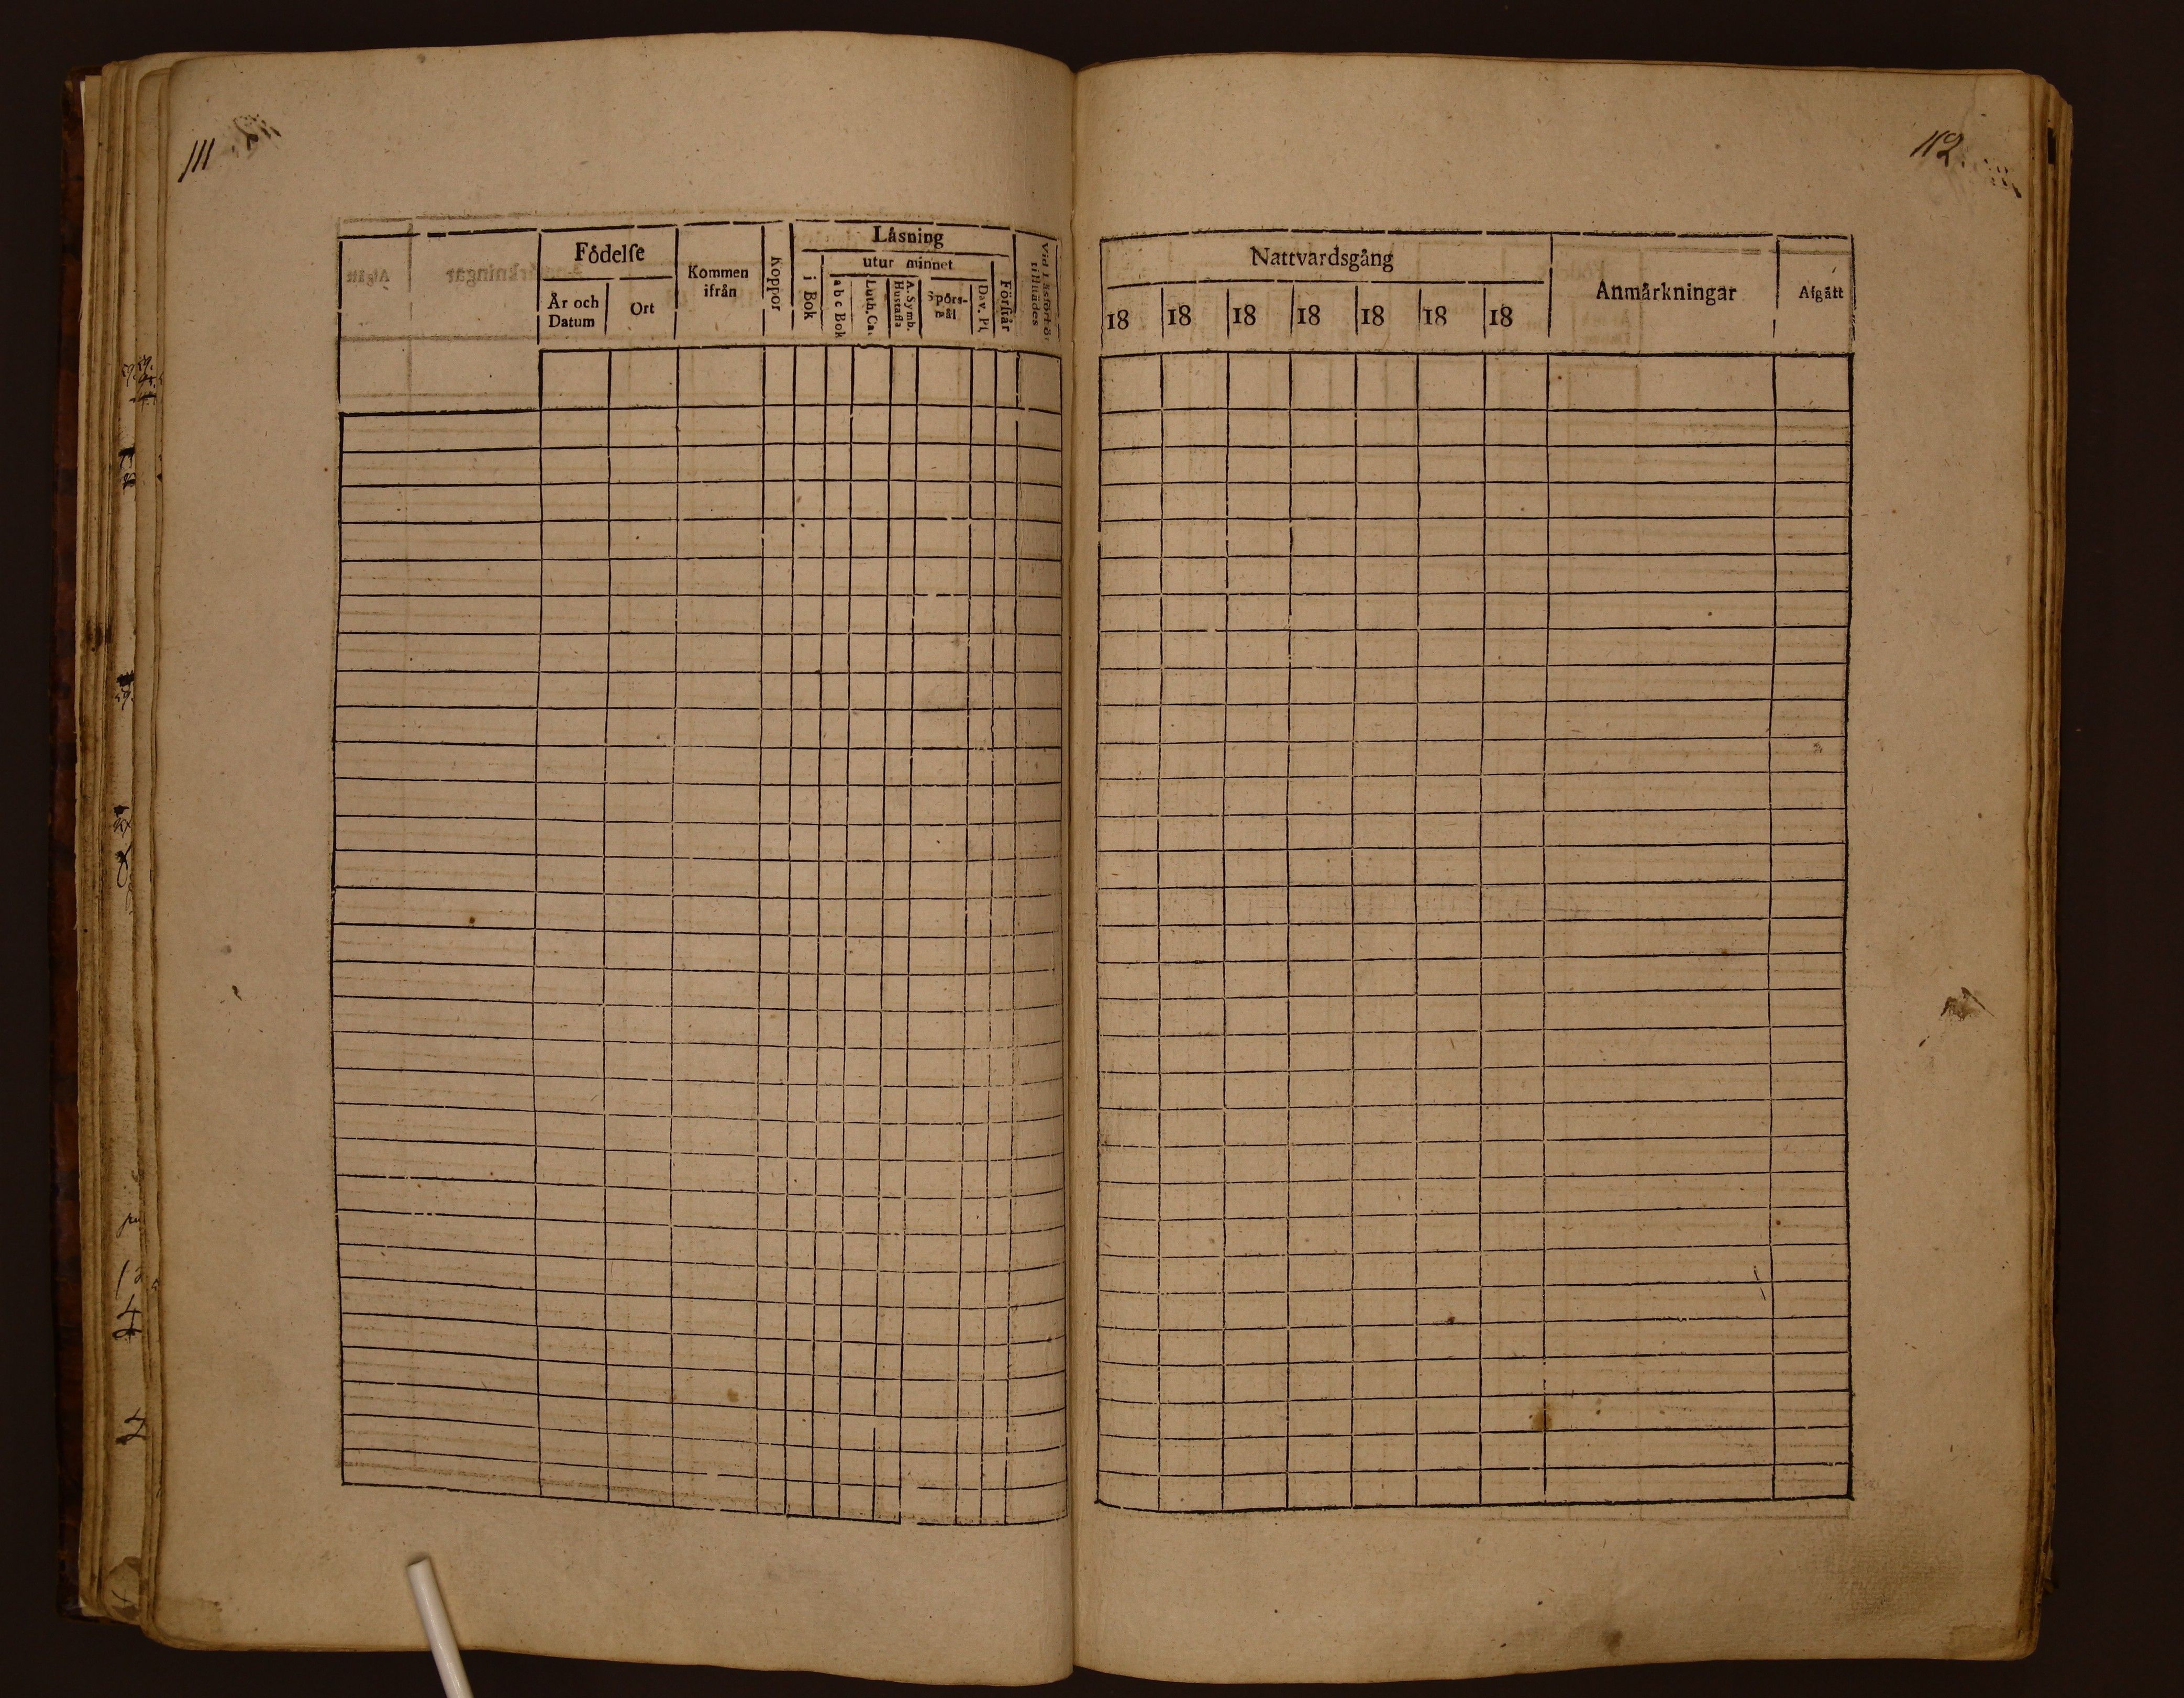 111
Födelſe
År och Datum
Ort
Kommen ifrån
Koppor
Läsning
utur minnet
i Bok
abc Bok
Luth. Ca.
A. Symb. Hustafla
Spörs-mål
Dav. Pſ.
Förſtår
Vid Läsförhör tillſtädes
112.
Nattvardsgång
18 18 18 18 18 18 18
Anmärkningar
Afgått